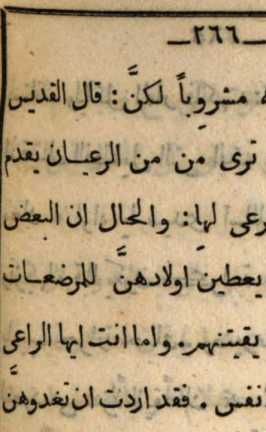 ـ٢٦٦ـ
مشروباً لكنَّ: قال القديس
ترى من من الرعيان يقدم
رعى لها: والحال ان البعض
يعطين اولادهنَّ للمرضعات
يقيتنهم. واما انت ايها الراعى
نفس. فقد اردت ان تغدوهنَّ